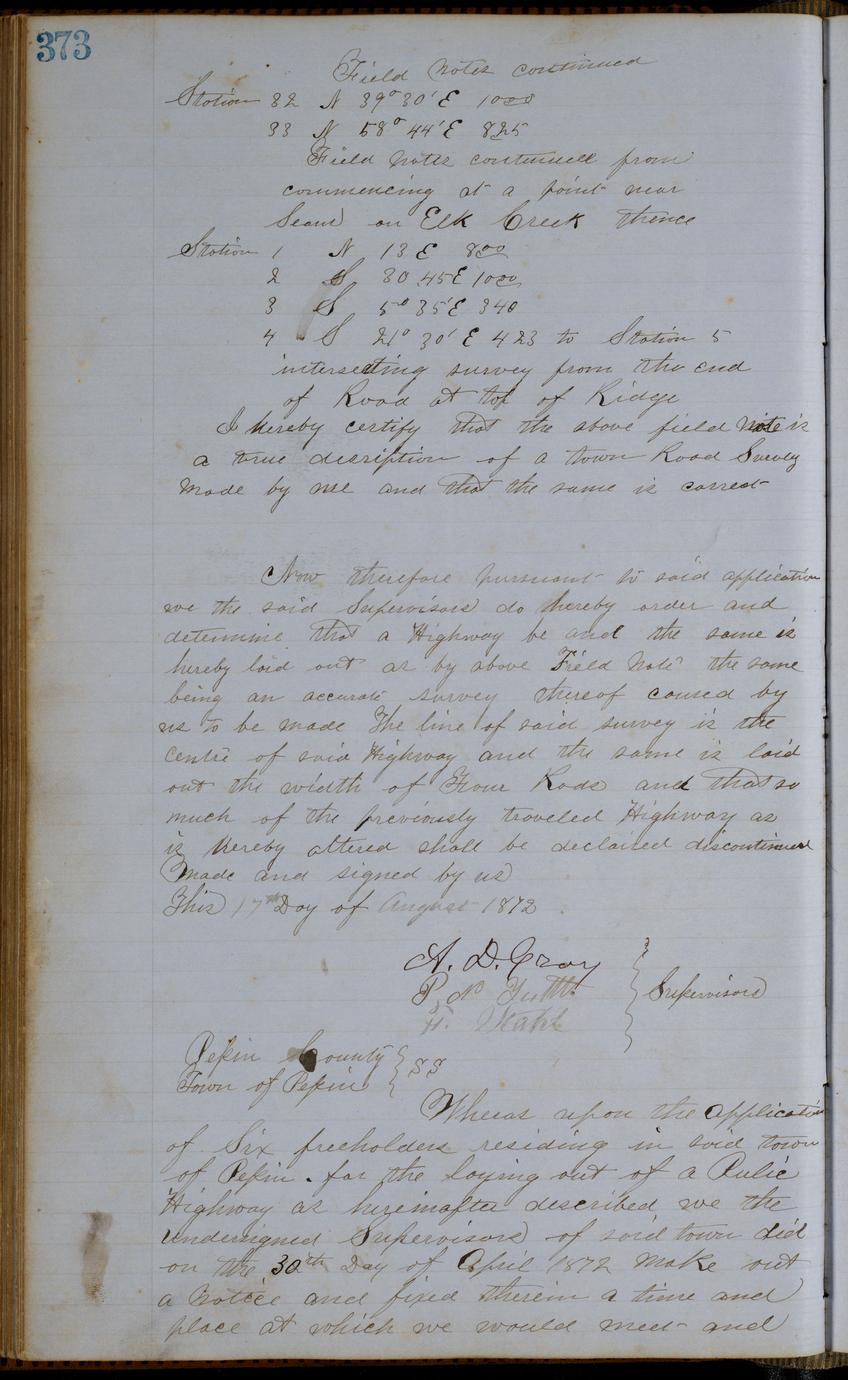 373
Field Notes continued
Station 32 N 39° 30' E 1000
33 N 58° 44' E 825
Field Notes continued from
commencing at a point near
on Elk Creek thence
Station 1 N 13 E 800
2 S 30 45 E 1000
3 S 5° 35' E 340
4 S 21° 30' E 423 to Station 5
intersecting survey from the end
of Road at top of Ridge
I hereby certify that the above field Note is
a true desription of a town Road Survey
Made by me and that the same is correct
Now therefore pursuant to said application
we the said Supervisors do hereby order and
determine that a Highway be and the same is
hereby laid out as by above Field Note the same
being an accurate survey thereof caused by
us to be made The line of said survey is the
centre of said Highway and the same is laid
out the width of Four Rods and that so
much of the previously traveled Highway as
is hereby altered shall be declared discontinued
Made and signed by us
This 17th Day of August 1872
A. D. Gray
P. N. Tuttle
Stahl
Supervisors
Pepin County
Town of Pepin
SS
Wheras upon the application
of Six freeholders residing in said town
of Pepin . for the laying out of a Pulic
Highway as hereinafter described we the
undersigned Supervisors of said town did
on the 30th Day of April 1872 Make out
a Notice and fixed therein a time and
place at which we would meet and